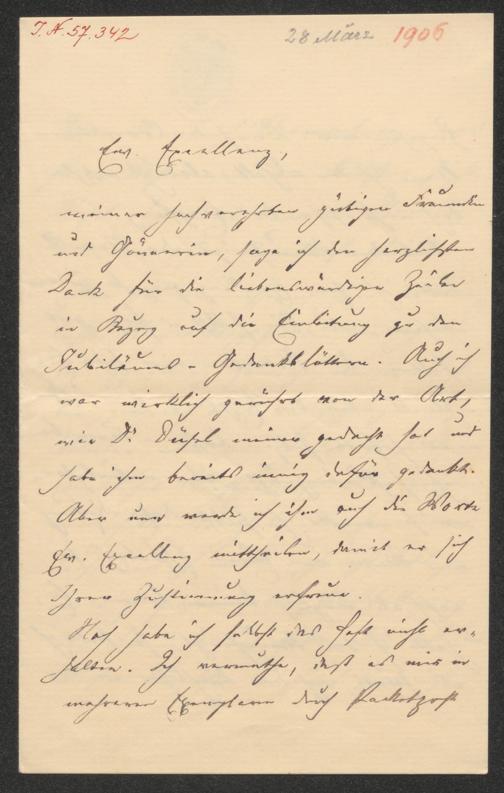 I. N. 57.342
28 März 1906
Ew. Excellenz,
meiner hochverehrten, gütigen Freundin
und Gönnerin, sage ich den herzlichsten
Dank für die liebenswürdigen Zeilen
in Bezug auf die Einleitung zu den
Jubiläums-Gedenkblättern. Auch ich
war wirklich gerührt von der Art,
wie Dr. Düsel meiner gedacht hat und
habe ihm bereits innig dafür gedankt.
Aber nun werde ich ihm auch die Worte
Ew. Excellenz mittheilen, damit er sich
Ihrer Zustimmung erfreue.
Noch habe ich selbst das Heft nicht er-
halten. Ich vermuthe, daß es mir in
mehreren Exemplaren durch Packetpost